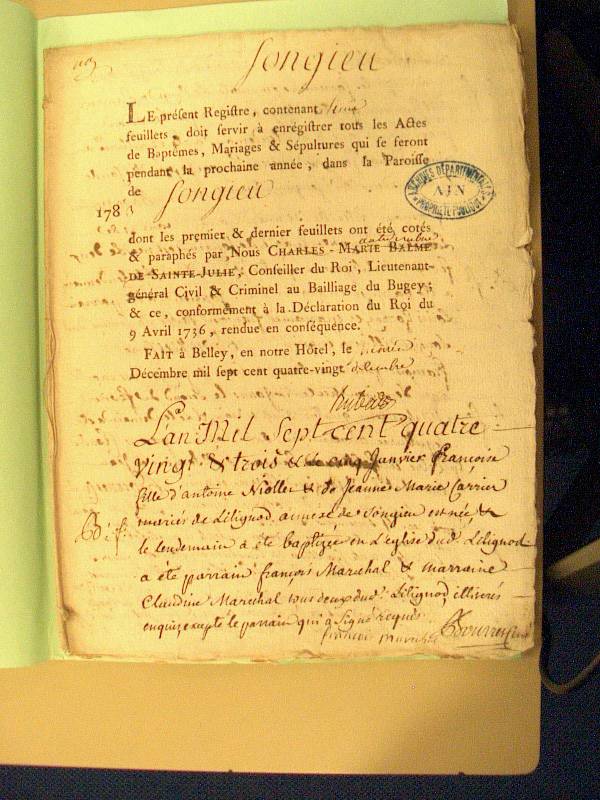 Songieu
LE présent Registre, contenant
feuillets, doit servir à enrégistrer tous les Actes
de Baptêmes, Mariages & Sépultures qui se feront
pendant la prochaine année, dans la Paroisse
de Songieu
ARCHIVES DÉPARTEMENTALES
AIN
PROPRIÉTÉ PUBLIQUE
1783
dont les premier & dernier feuillets ont été cotés
& paraphés par Nous CHARLES-MARIE BALME
DE SAINTE-JULIE, Conseiller du Roi, Lieutenant-
général Civil & Criminel au Bailliage du Bugey;
& ce, conformément à la Déclaration du Roi du
9 Avril 1736, rendue en conséquence.
FAIT à Belley, en notre Hôtel, le
Décembre mil sept cent quatre-vingt
L'an Mil Sept cent quatre
vingt & trois & le cinq Janvier françoise
fille d'antoine Niollet & de Jeanne Marie Carrier
mariés de Lilignod annexe de Songieu est née &
le lendemain a été baptizée en L'eglise dud. Lilignod
a été parrain françois Marechal & marraine
Claudine Marechal tous deux dud. Lilignod, illiterés
enquis, excepté le parrain qui a signé requis